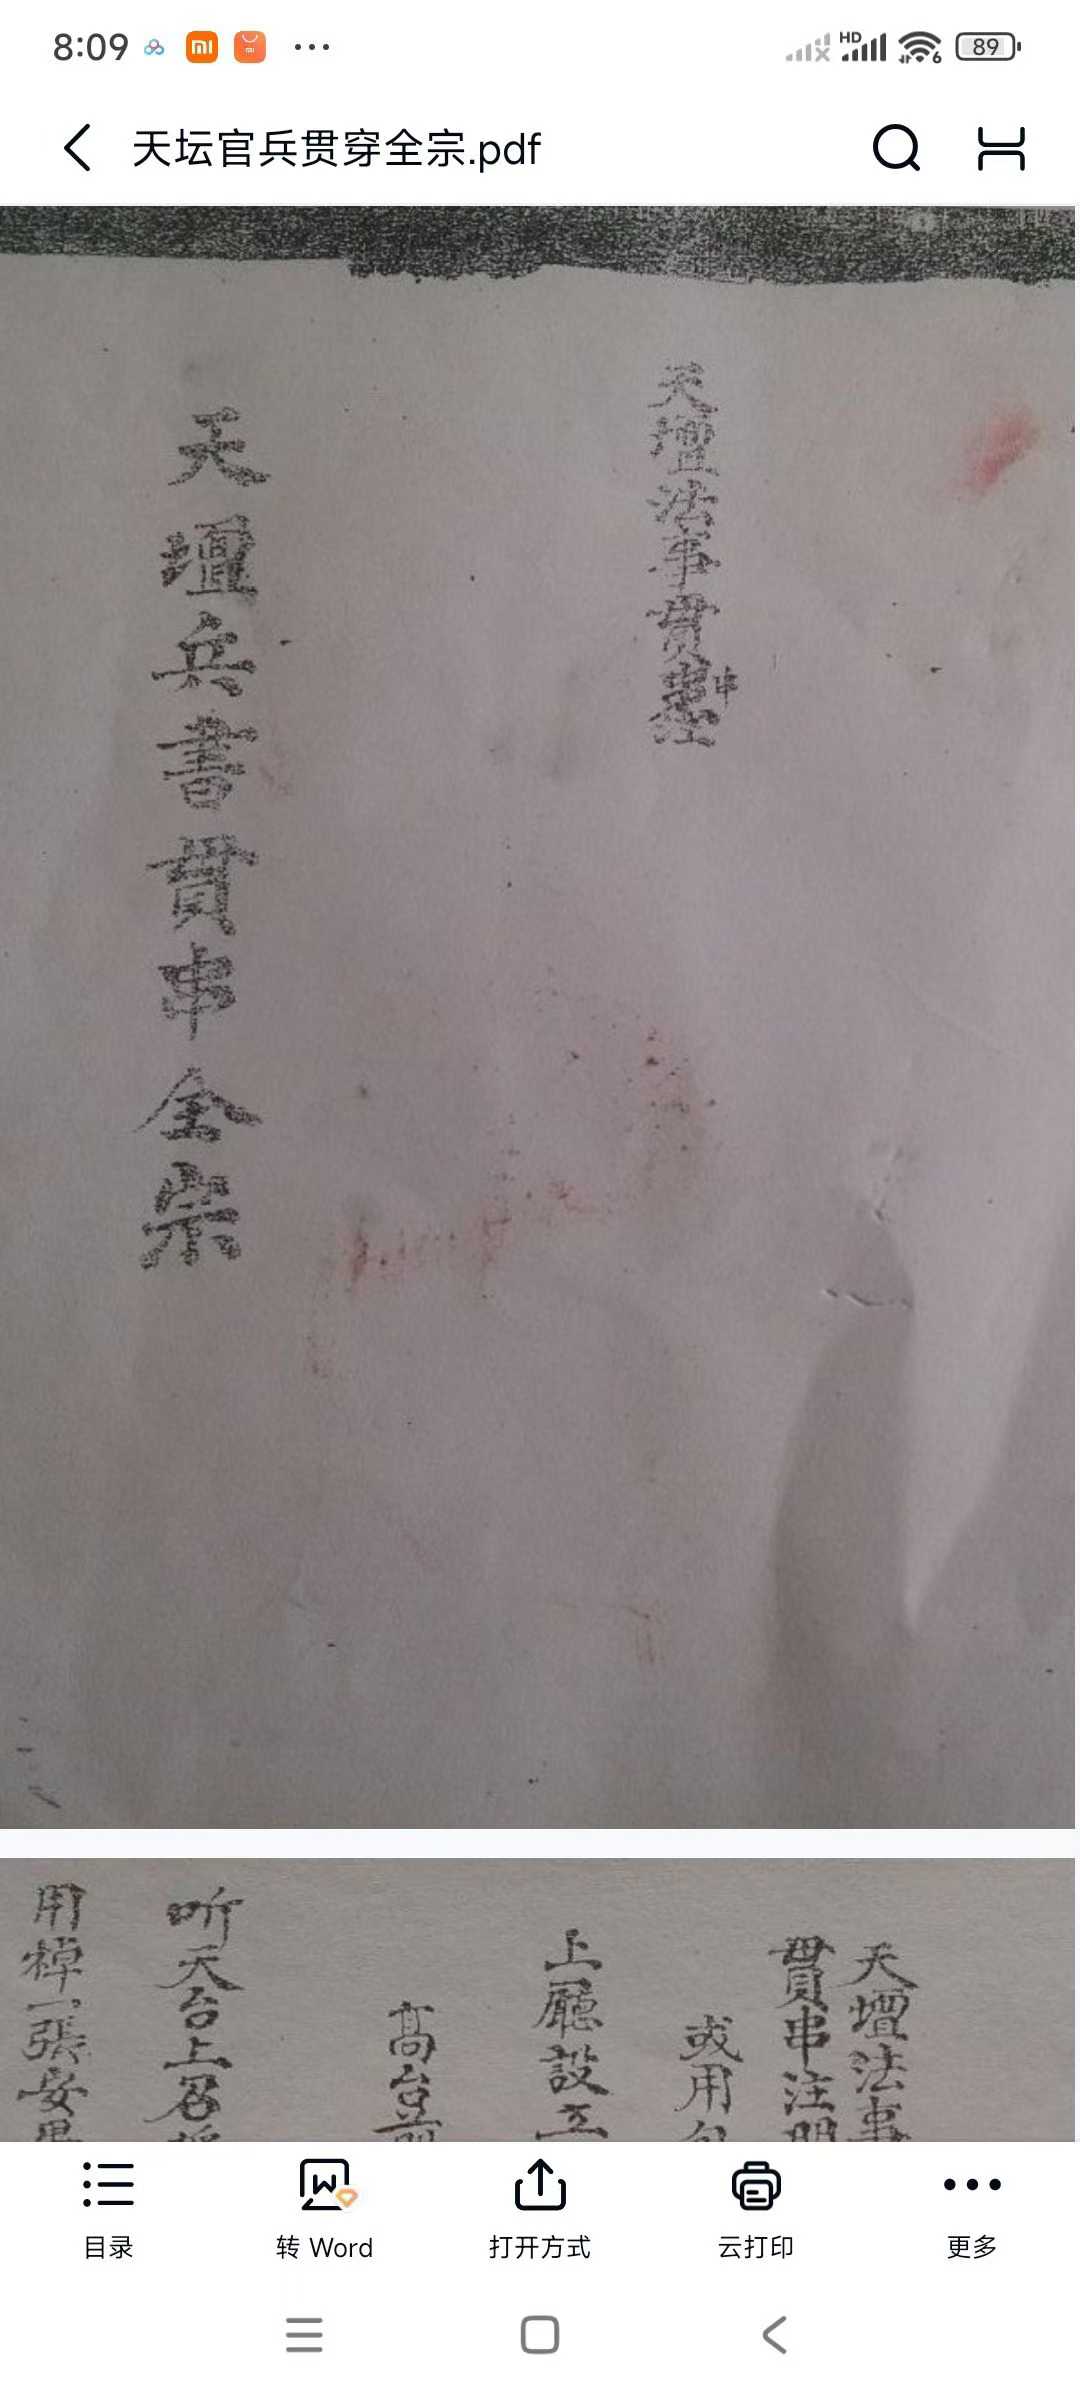 8:09
HD
6
89
天坛官兵贯穿全宗.pdf
天壇法事貫串注
串
天壇兵書貫串全宗
天壇法事
貫串注明
或用
上廳設五
高台前
听天台上名
用棹一張安
目录
转 Word
打开方式
云打印
更多